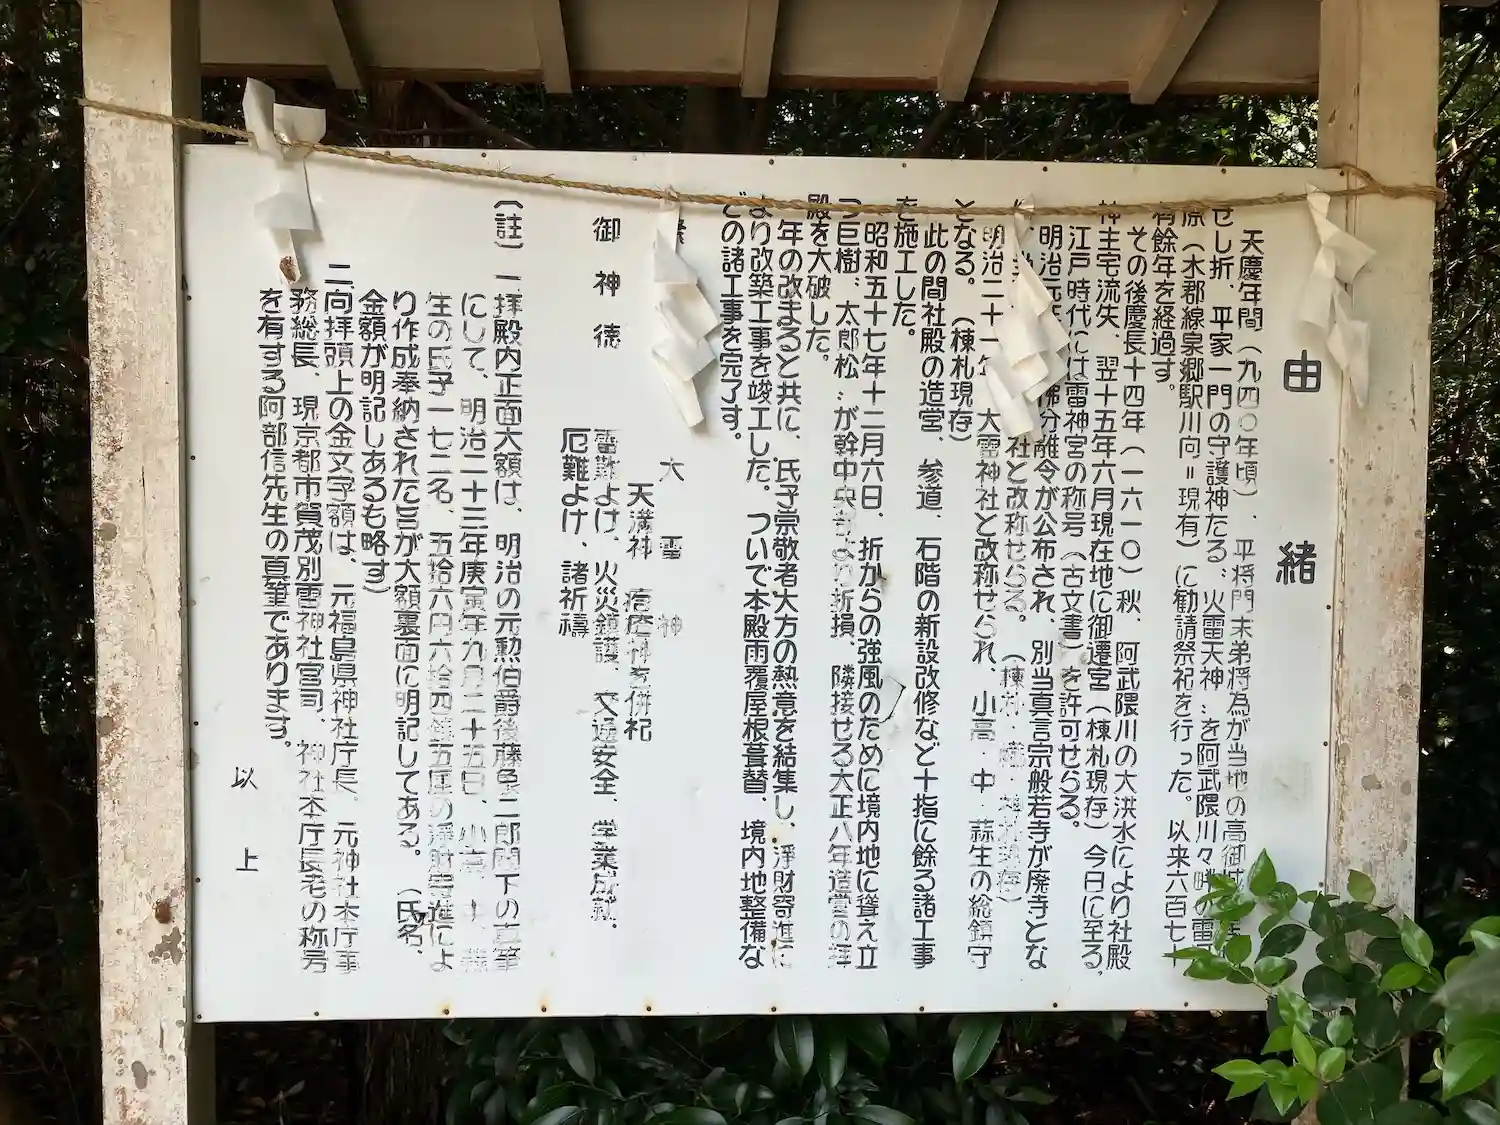 由緒
天慶年間（九四〇年頃）、平将門末弟将為が当地の高御城
せし折、平家一門の守護神たる〝火雷天神〟を阿武隈川々畔の雷
原（木郡線泉郷駅川向＝現有）に勧請祭祀を行った。以来六百七十
有餘年を経過す。
その後慶長十四年（一六一〇）秋、阿武隈川の大洪水により社殿
神主宅流失、翌十五年六月現在地に御遷宮（棟札現存）今日に至る。
江戸時代には雷神宮の称号（古文書）を許可せらる。
明治元年 佛分離令が公布され、別当真言宗般若寺が廃寺とな
社と改称せらる。
明治二十一年 大雷神社と改称せられ、小高・中・蒜生の総鎮守
となる。（棟札現存）
此の間社殿の造営、参道、石階の新設改修など十指に餘る諸工事
を施工した。
昭和五十七年十二月六日、折からの強風のために境内地に聳え立
つ巨樹〝太郎松〟が幹中央部より折損、隣接せる大正八年造営の拝
殿を大破した。
年の改まると共に、氏子崇敬者大方の熱意を結集し、淨財寄進に
より改築工事を竣工した。ついで本殿雨覆屋根葺替、境内地整備な
どの諸工事を完了す。
大雷神
天満神 疱瘡神を併祀
御神徳
雷難よけ、火災鎮護、交通安全、学業成就、
厄難よけ、諸祈禱
（註）一、拝殿内正面大額は、明治の元勲伯爵後藤象二郎閣下の直筆
にして、明治二十三年庚寅年九月二十五日、小高、中、蒜
生の氏子一七二名、五拾六円六拾四銭五厘の淨財寄進によ
り作成奉納された旨が大額裏面に明記してある。（氏名、
金額が明記しあるも略す）
二、向拝頭上の金文字額は、元福島県神社庁長、元神社本庁事
務総長、現京都市賀茂別雷神社宮司、神社本庁長老の称号
を有する阿部信先生の直筆であります。
以上